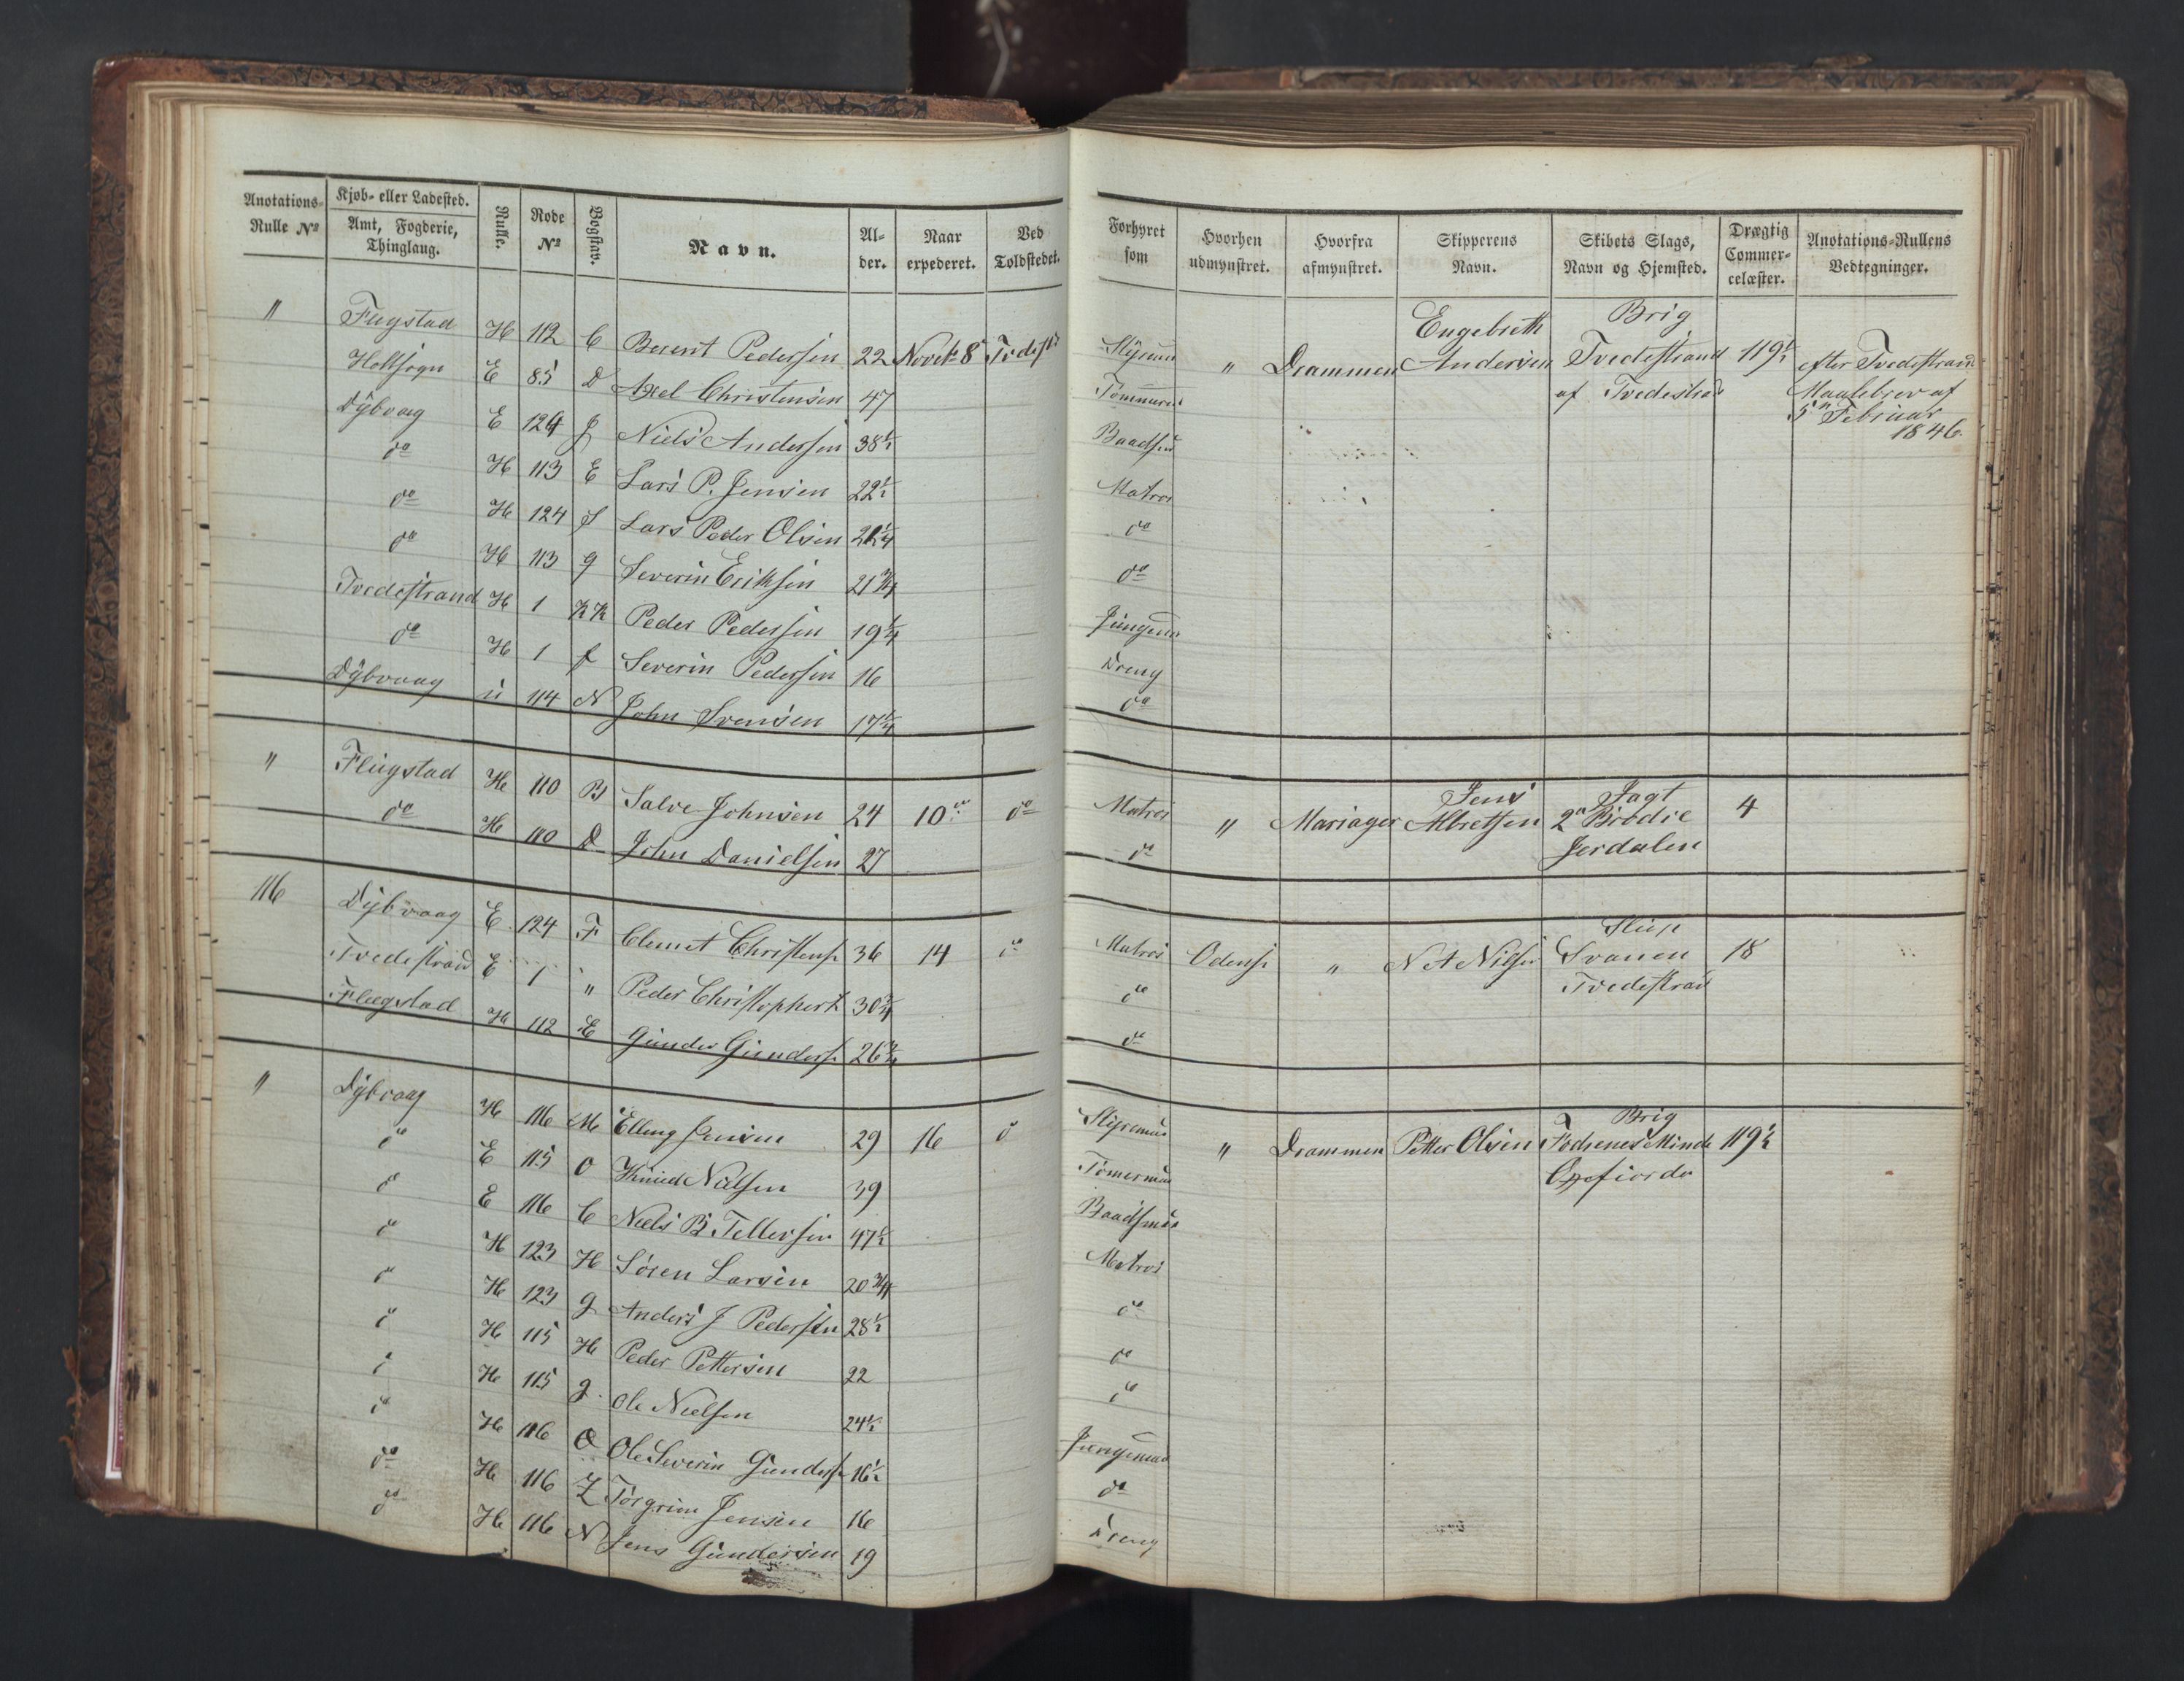 Anotations-Rulle No | Kjøb- eller Ladested. Amt, Fogderie, Thinglaug. | Rulle. | Rode No | Bogstav. | Navn. | Alder. | Naar expederet. | Ved Toldstedet. | Forhyret som | Hvorhen udmynstret. | Hvorfra afmynstret. | Skipperens Navn. | Skibets Slags, Navn og Hjemsted. | Drægtig Commercelæster. | Anotations-Rullens Vedtegninger.
" | H | 112 | C | Berent Pedersen | 22 | Novebr 8 | Tvedestr | Styrmn | " | Drammen | Engebreth Andersen | Brig Tvedestrand af Tvedestrad | 119½ | efter Tvedestrand Maalebrev af 5n Februar 1846.
Holtsogn | E | 85 | D | Axel Christensen | 47 | Tømmerm
Dÿbvaag | E | 124 | J | Niels Andersen | 38½ | Baadsm
do | H | 113 | E | Lars P. Jensen | 22½ | Matros
do | H | 124 | J | Lars Peder Olsen | do
do | H | 113 | g | Severin Eriksen | 21¾ | do
Tvedestrand | H | 1 | KK | Peder Pedersen | 19¼ | Jungmn
do | H | 1 | f | Severin Pedersen | 16 | Dreng
Dÿbvaag | ü | 114 | N | John Svensen | 17¼ | do
" | Flugstad | H | 110 | B | Salve Johnsen | 24 | 10de | do | Matros | " | Mariager | Jens Albretsen | Jagt 2de Brødre Jerdalen | 4
do | H | 110 | D | John Danielsen | 27 | do
116 | Dÿbvaag | E | 124 | F | Clemet Christens. | 36 | 14 | do | Matros | Odense | " | N A Nilsen | Slup Svanen Tvedestrad | 18
Tvedestrad | E | 1 | " | Peder Christophers | 30¾ | do
Flugstad | H | 112 | E | Gunder Gunders. | 26¾ | do
" | Dÿbvaag | H | 116 | M | Elling Jensen | 29 | 16 | do | Styrmn | " | Drammen | Petter Olsen | Brig Fodrenes Minde Oxefiorde | 119½
do | E | 115 | O | Knud Nielsen | 39 | Tømermn
do | E | 116 | C | Niels B. Tellefsen | 47½ | Baadsmn
do | H | 123 | H | Sören Larsen | 20¾ | Matros
do | H | 123 | g | Anders J Pedersen | 28½ | do
do | H | 115 | H | Peder Pettersen | 22 | do
do | H | 115 | g. | Ole Nielsen | 24½ | do
do | H | 116 | O | Ole Severin Gunders. | 16½ | Jungmand
do | H | 116 | Z | Torgrim Jensen | 16 | do
do | H | 116 | N | Jens Gundersen | 19 | Dreng